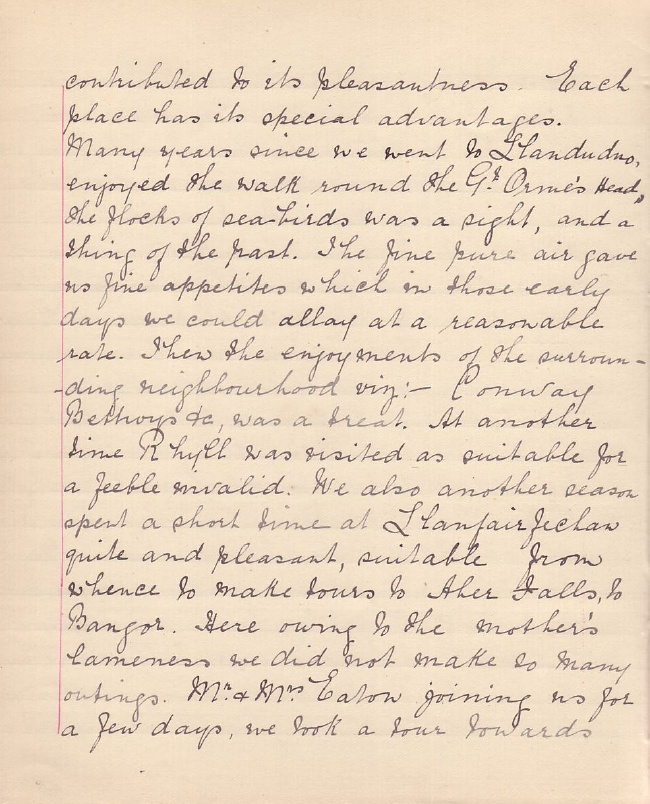 contributed to its pleasantness. Each
place has its special advantages.
Many years since we went to Llandudno,
enjoyed the walk round the Gt. Orme's Head,
the flocks of sea-birds was a sight, and a
thing of the past. The fine pure air gave
us fine appetites which in those early
days we could allay at a reasonable
rate. Then the enjoyments of the surroun-
-ding neighbourhood viz:- Conway
Bettwys &c, was a treat. At another
time Rhyll was visited as suitable for
a feeble invalid. We also another season
spent a short time at Llanfairfechan
quite and pleasant, suitable from
whence to make tours to Aber Falls, to
Bangor. Here owing to the mother's
lameness we did not make so many
outings. Mr. & Mrs Eaton joining us for
a few days, we took a tour towards